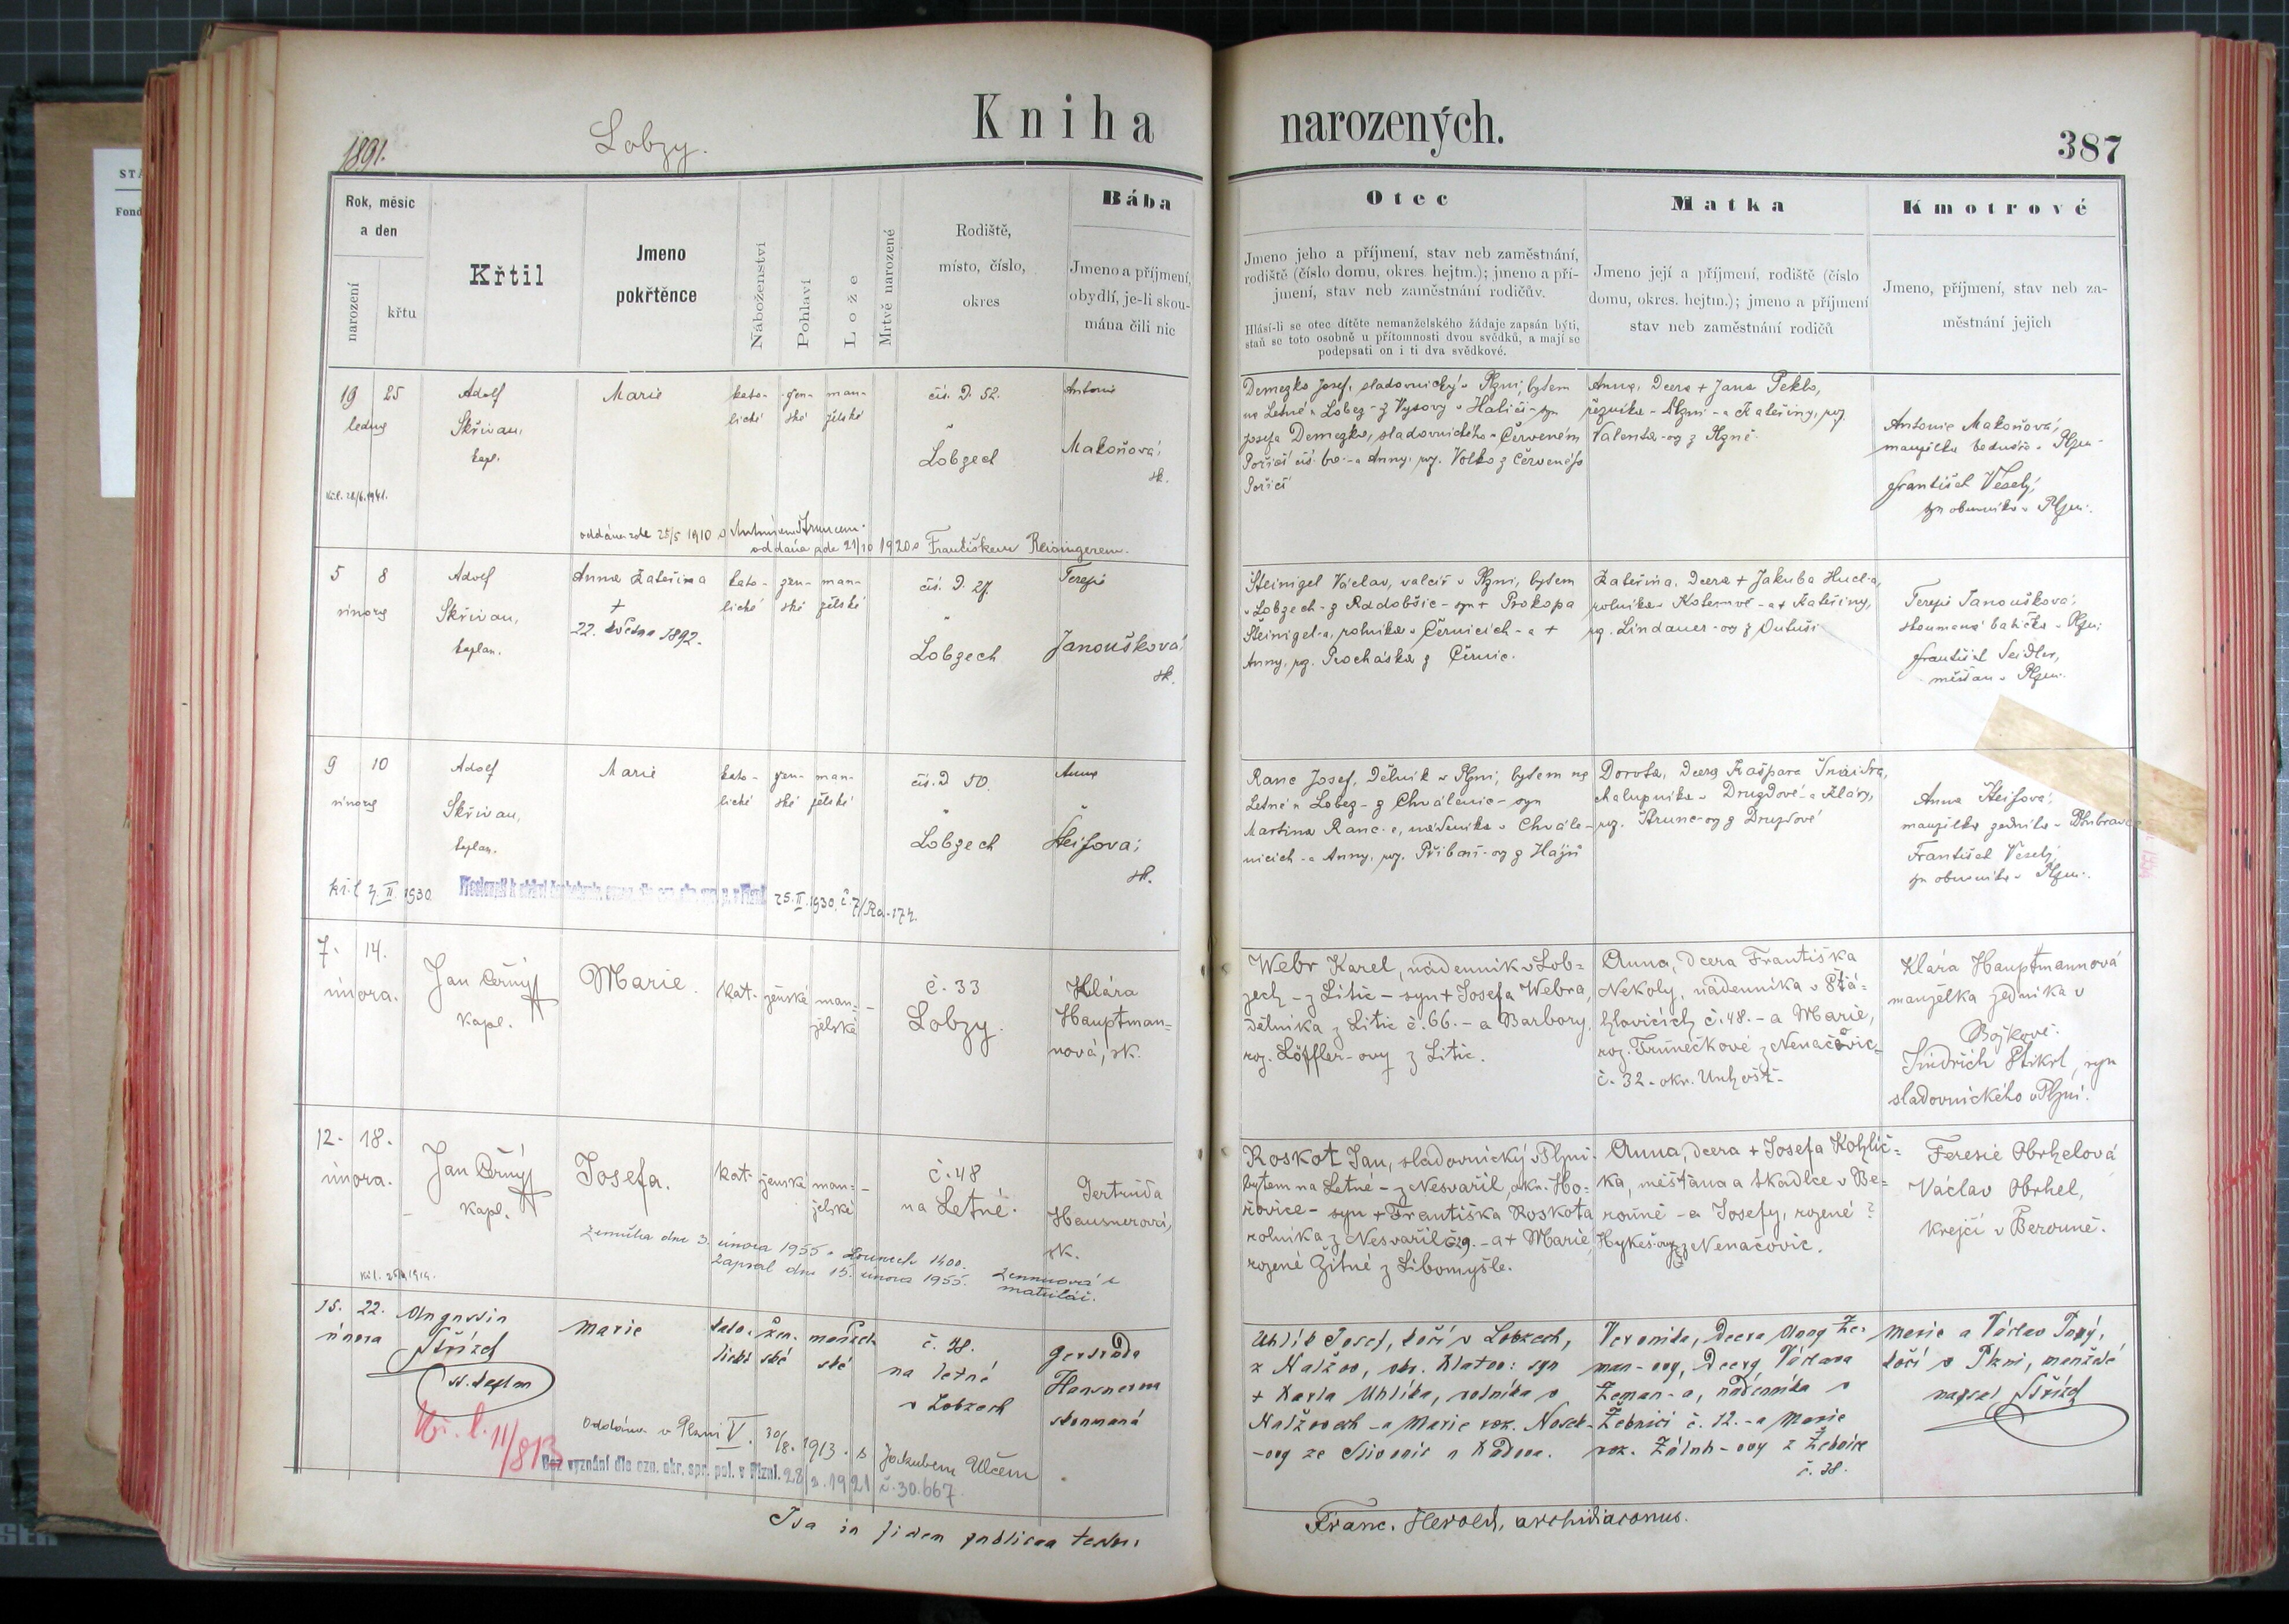 STA
Fond
1891.
Lobzy.
Kniha
narozených.
387
Rok, měsíc
a den
narození
křtu
Křtil
Jmeno
pokřtěnce
Náboženství
Pohlaví
Lože
Mrtvě narozené
Rodiště,
místo, číslo,
okres
Bába
Jmeno a příjmení,
obydlí, je-li skou-
mána čili nic
Otec
Jmeno jeho a příjmení, stav neb zaměstnání,
rodiště (číslo domu, okres. hejtm.); jmeno a pří-
jmení, stav neb zaměstnání rodičův.
Hlásí-li se otec dítěte nemanželského žádaje zapsán býti,
staň se toto osobně u přítomnosti dvou svědků, a mají se
podepsati on i ti dva svědkové.
Matka
Jmeno její a příjmení, rodiště (číslo
domu, okres. hejtm.); jmeno a příjmení
stav neb zaměstnání rodičů
Kmotrové
Jmeno, příjmení, stav neb za-
městnání jejich
19 25
ledna
Adolf
Skřivan,
kapl.
Marie
kato-
lické
žen-
ské
man-
želské
čís. D. 52.
v
Lobzech
Antonie
Makoňová,
sk.
Demezko Josef, sladovnický v Plzni, bytem
na Letné u Lobez - z Vysovy v Haliči - syn
Josefa Demezko, sladovnického v Červeném
Poříčí - a Anny, roz. Volko z Červeného
Poříčí
Anna, dcera + Jana Pekla,
řezníka v Plzni - a Kateřiny, roz.
Valenta-ov z Plzně.
Antonie Makoňová,
manželka bednáře v Plzni
František Veselý,
syn obuvníka v Plzni.
oddána zde 25/5 1910 s
oddána zde 21/10 1920 s Františkem Reisingerem.
5 8
února
Adolf
Skřivan,
kaplan.
Anna Kateřina
+
22. května 1892.
kato-
lické
žen-
ské
man-
želské
čís. D. 27.
v
Lobzech
Terezie
Janoušková,
sk.
Steinigel Václav, valcíř v Plzni, bytem
v Lobzech - z Radobčic - syn + Prokopa
Steinigel-a, rolníka v Černicích - a +
Anny, roz. Procháska z Černic.
Kateřina, dcera + Jakuba Hucl-a,
rolníka v Koterově - a + Kateřiny,
roz. Lindauer-ov z
Terezie Janoušková,
skoumaná babička v Plzni
František Seidler,
měšťan v Plzni.
9 10
února
Adolf
Skřivan,
kaplan.
Marie
kato-
lické
žen-
ské
man-
želské
čís. D 50.
v
Lobzech
Anna
Šteifova,
sk.
Ranc Josef, dělník v Plzni, bytem na
Letné u Lobez - z Chválenic - syn
Martina Ranc-e, v Chvále-
nicích - a Anny, roz. Přibáň-ov z Hájů
Dorota, dcera Kašpara Šnaidra,
chalupníka v Druzdové - a Kláry,
roz. Štrunc-ov z Druzdové
Anna Šteifová,
manželka zedníka v Doubravce
František Veselý,
syn obuvníka v Plzni.
25.II.1930. č. 7/Ra-174.
7. 14.
února.
Jan Černý
kapl.
Marie.
kat-
ženské
man=
želské
č. 33
Lobzy.
Klára
Hauptman=
nová, sk.
Webr Karel, nádenník v Lob=
zech - z Litic - syn + Josefa Webra,
dělníka z Litic č. 66. - a Barbory,
roz. Löffler-ovy z Litic.
Anna, dcera Františka
Nekoly, nádenníka v Stá=
hlovicích č. 48. - a Marie,
roz. Truněčkové z Nenačovic
č. 32 - okr. Unhošť-
Klára Hauptmannová
manželka zedníka v
Božkově.
Jindřich Stikrl, syn
sladovnického v Plzni.
12. 18.
února.
Jan Černý
kapl.
Josefa.
kat-
ženské
man=
želské
č. 48
na Letné.
Gertruda
Hausnerová,
sk.
Roskot Jan, sladovnický v Plzni
bytem na Letné - z Nesvařil, okr. Ho=
řovice - syn + Františka Roskota
rolníka z Nesvařil č. 29. - a + Marie,
rozené Žitné z Libomyšle.
Anna, dcera + Josefa Kohlíč=
ka, měšťana a tkadlce v Be=
rouně - a Josefy, rozené ?
Hykeš-ovy z Nenačovic.
Terezie Obrhelová
Václav Obrhel,
krejčí v Berouně.
Zemřela dne 3. února 1955 v Lounech 1400.
Zapsal dne 15. února 1955.
matrikář.
15. 22.
února
Augustin
Střízek
st. kaplan
Marie
kato-
lické
žen-
ské
manžel-
ské
č. 48.
na letné
v Lobzech
Gertruda
Hausnerova
skoumaná
Uhlík Josef, kočí v Lobzech,
z Nalžov, okr. Klatov: syn
+ Karla Uhlíka, rolníka v
Nalžovech - a Marie roz. Nosek-
-ovy ze Slivonic u Kadova.
Veronika, dcera Anny Ze-
man-ovy, dcery Václava
Zeman-a, nádenníka v
Žebnici č. 12. - a Marie
roz. -ovy z Žebnice
č. 38.
Marie a Václav Tupý,
kočí v Plzni, manželé
napsal Střízek
Kř. l. 11/8 13
Oddána v Plzni V. 30/8. 1913. s Jakubem Ulčem
Bez vyznání dle ozn. okr. spr. pol. v Plzni. 28/2. 1921 č. 30.667.
Ita in fidem publicam testor:
Franc. Herold, archidiaconus.